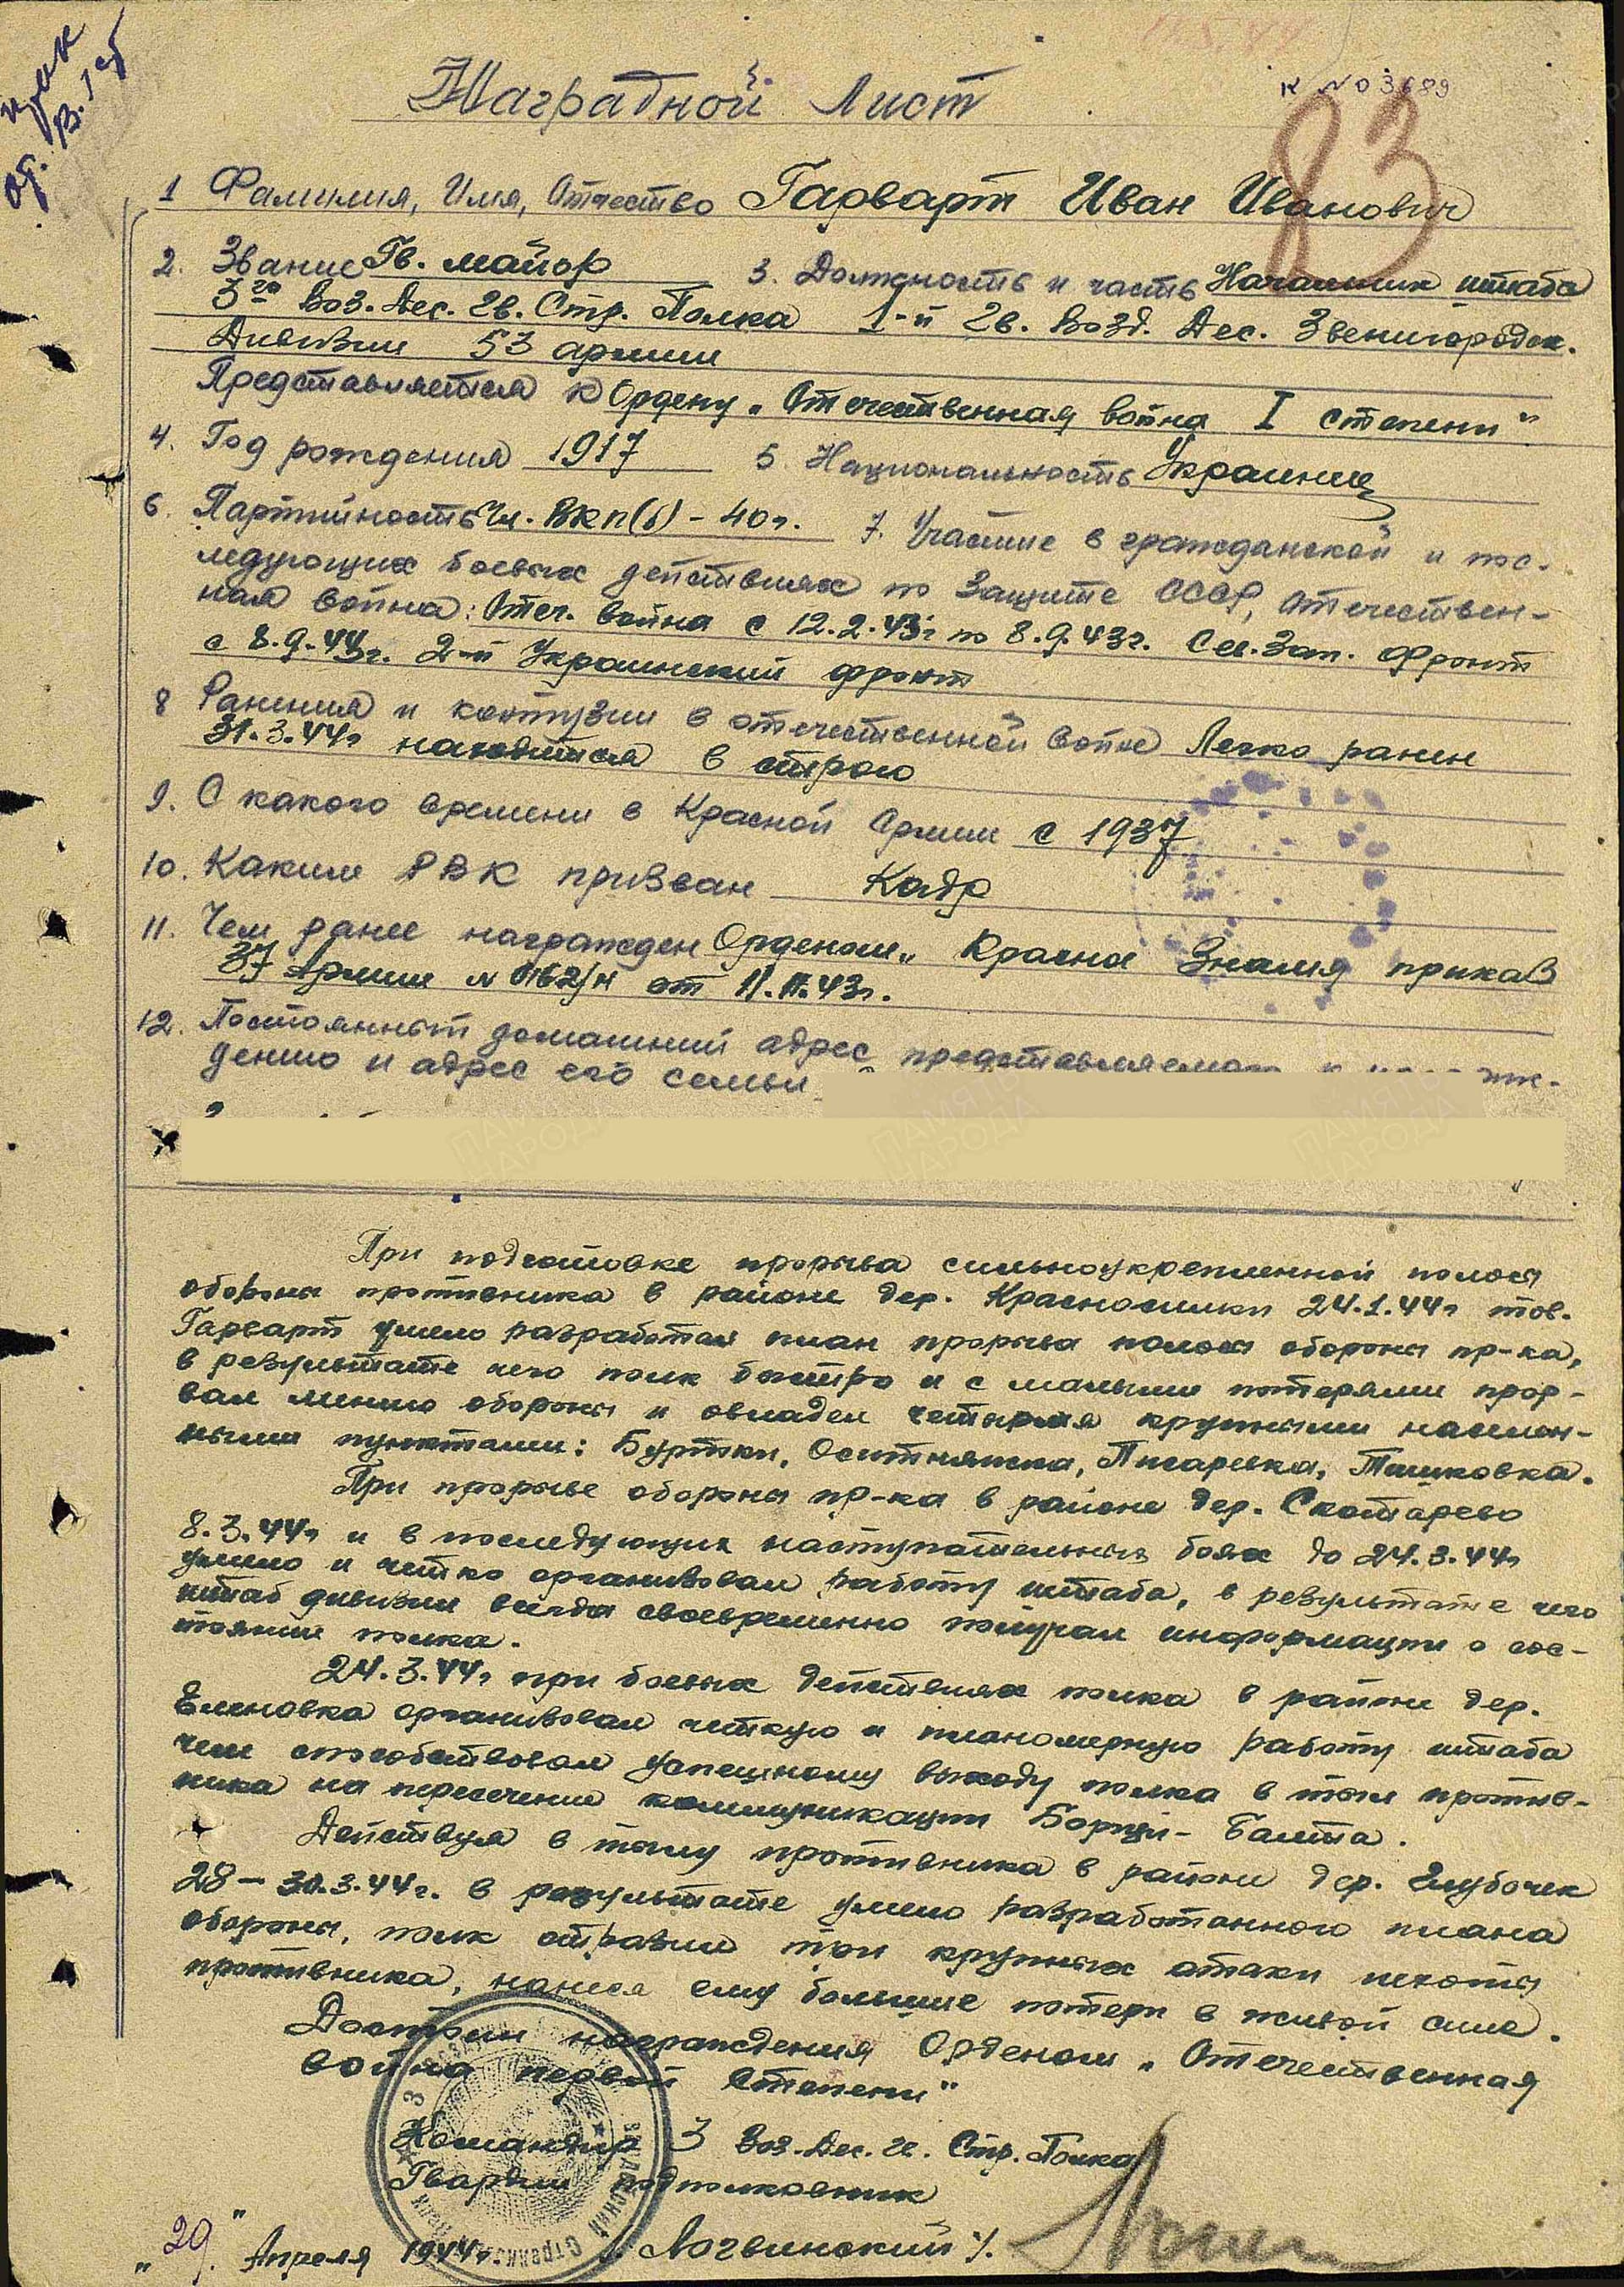 К №03689
83
Наградной Лист
1 Фамилия, Имя, Отчество Гарварт Иван Иванович
2. Звание Гв. майор 3. Должность и часть Начальник штаба
3го Воз. Дес. Гв. Стр. Полка 1-й Гв. Возд. Дес. Звенигородск.
Дивизии 53 армии
Представляется к Ордену „Отечественная война I степени"
4. Год рождения 1917 5. Национальность Украинец
6. Партийность Чл. ВКП(б) - 40г. 7. Участие в гражданской и пос-
ледующих боевых действиях по защите СССР, отечествен-
ная война: Отеч. война с 12.2.43г по 8.9.43г. Сев. Зап. Фронт
с 8.9.44г. 2-й Украинский фронт
8 Ранения и контузии в отечественной войне Легко ранен
31.3.44г находится в строю
9. С какого времени в Красной Армии с 1937
10. Каким РВК призван Кадр
11. Чем ранее награжден Орденом „Красна Знамя приказ
37 Армии № 0162/н от 11.11.43г.
12. Постоянный домашний адрес представляемого к
дению и адрес его семьи
При подготовке прорыва сильноукрепленной полосы
обороны противника в районе дер. Красносилки 24.1.44г тов.
Гарварт умело разработал план прорыва полосы обороны пр-ка,
в результате чего полк быстро и с малыми потерями прор-
вал линию обороны и овладел четырмя крупными населен-
ными пунктами: Буртки, Оситняжка, Писаревка, Тишковка.
При прорыве обороны пр-ка в районе дер. Скотарево
8.3.44г и в последующих наступательных боях до 24.3.44г
умело и четко организовал работу штаба, в результате чего
штаб дивизии всегда своевременно получал информации о сос-
тоянии полка.
24.3.44г при боевых действиях полка в районе дер.
Еленовка организовал четкую и планомерную работу штаба
чем способствовал успешному выходу полка в тыл против-
ника на пересечение коммуникации Борщи - Балта.
Действуя в тылу противника в районе дер. Глубочек
28 - 30.3.44г. в результате умело разработанного плана
обороны, полк отразил три крупных атаки пехоты
противника, нанеся ему большие потери в живой силе.
Достоин награждения Орденом „Отечественная
война первой степени"
Командир 3 Воз. Дес. Гв. Стр. Полка
Гвардии подполковник
"29" Апреля 1944г. /Логвинский/.